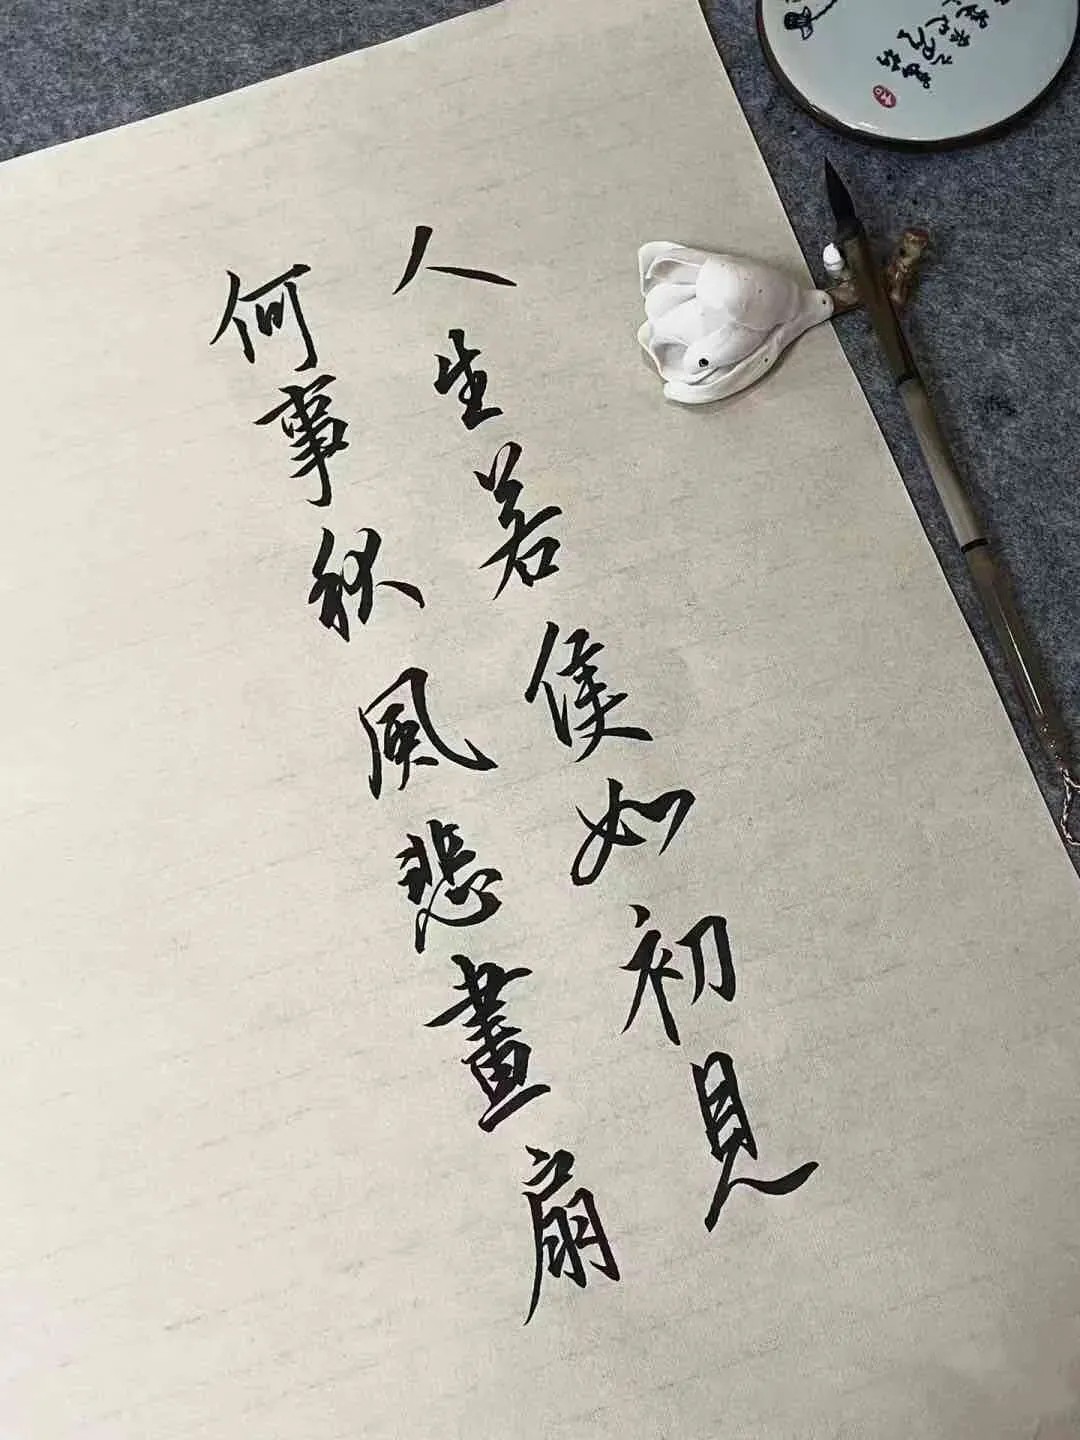 人生若隻如初見
何事秋風悲畫扇